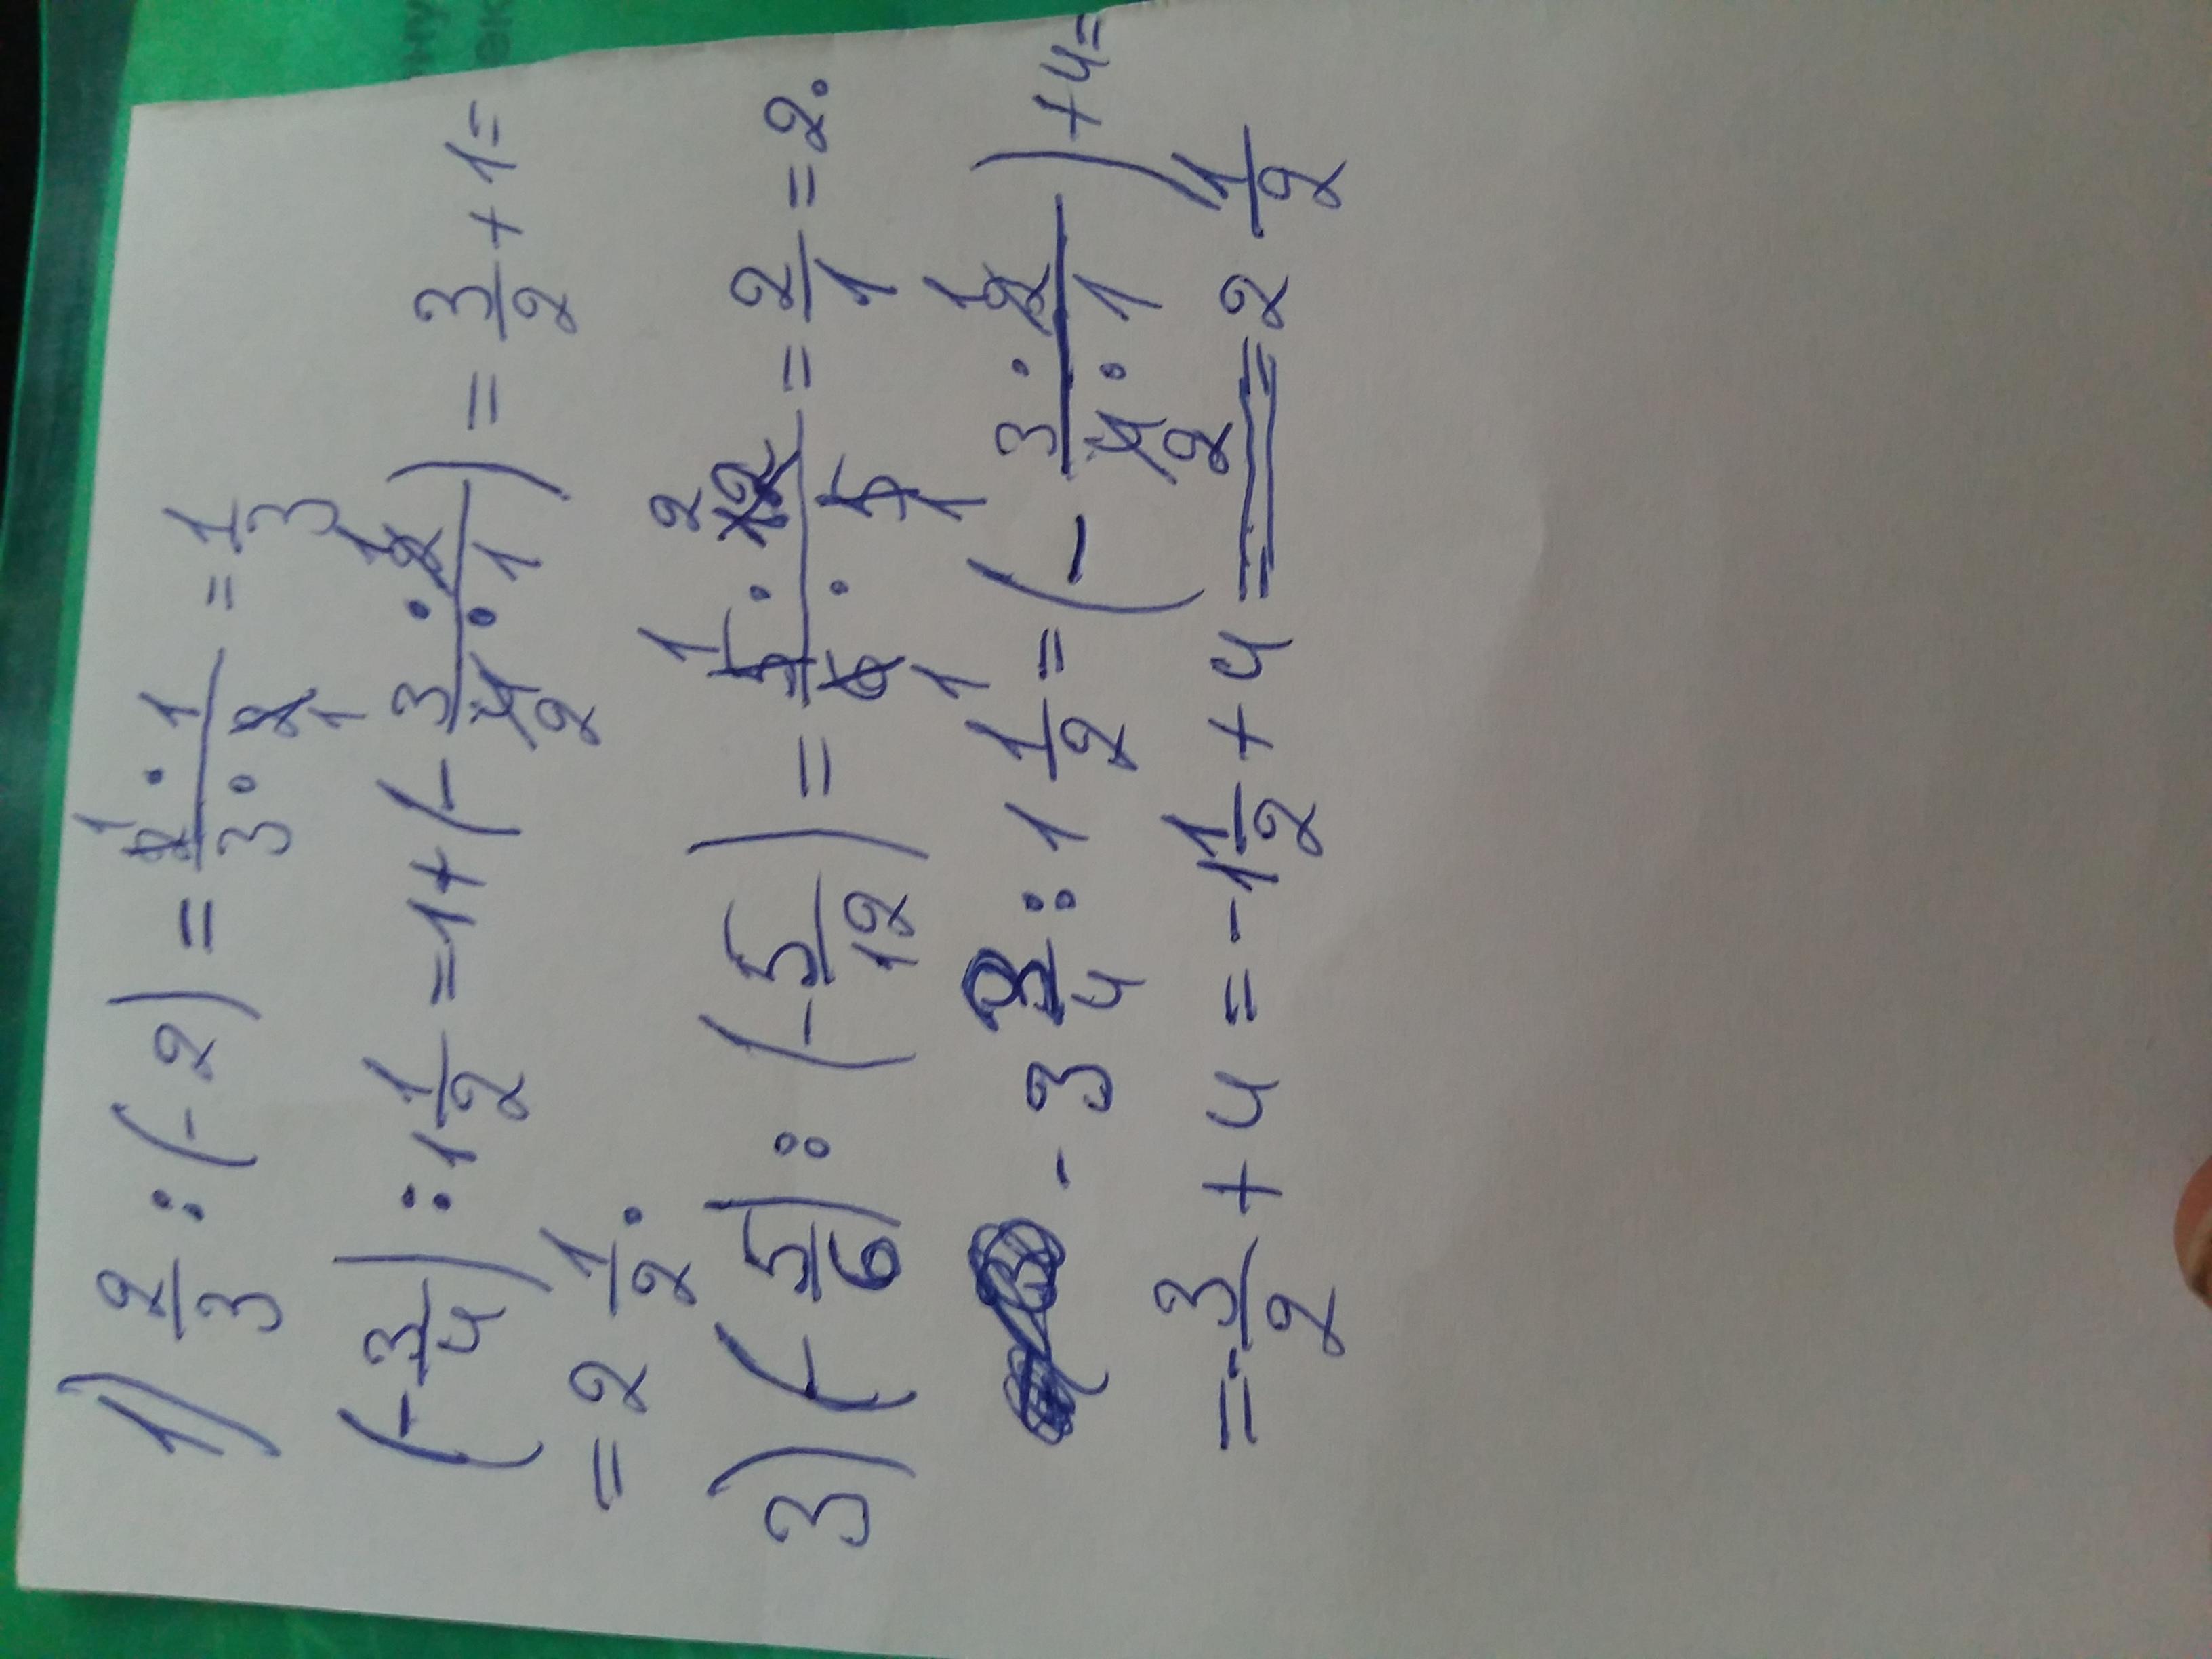 1) 2/3 : (-2) = 2·1/3·2 = 1/3
(-3/4) : 1 1/2 = 1 + (-3·2/4·1) = 3/2 + 1 =
= 2 1/2.
3) (-5/6) : (-5/12) = 5·12/6·5 = 2/1 = 2.
- 3 3/4 : 1 1/2 = (- 3·2/4·1) + 4 =
= -3/2 + 4 = -1 1/2 + 4 = 2 1/2